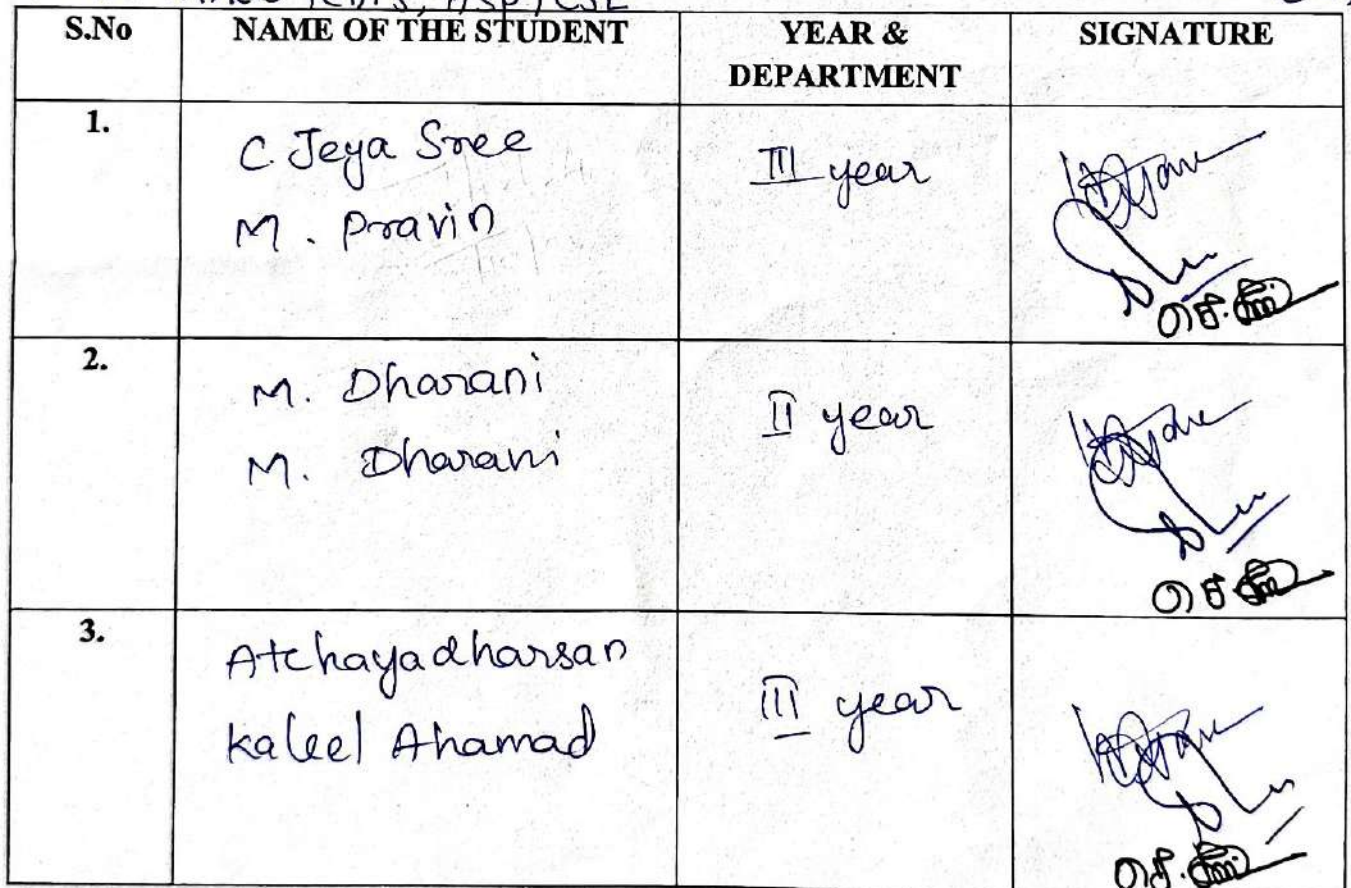 S.No NAME OF THE STUDENT YEAR & SIGNATURE
DEPARTMENT
1.
C. Jeya Sree
M. Pravin
III year
2.
M. Dharani
M. Dharani
II year
3.
Atchayadharsan
Kaleel Ahamad
III year